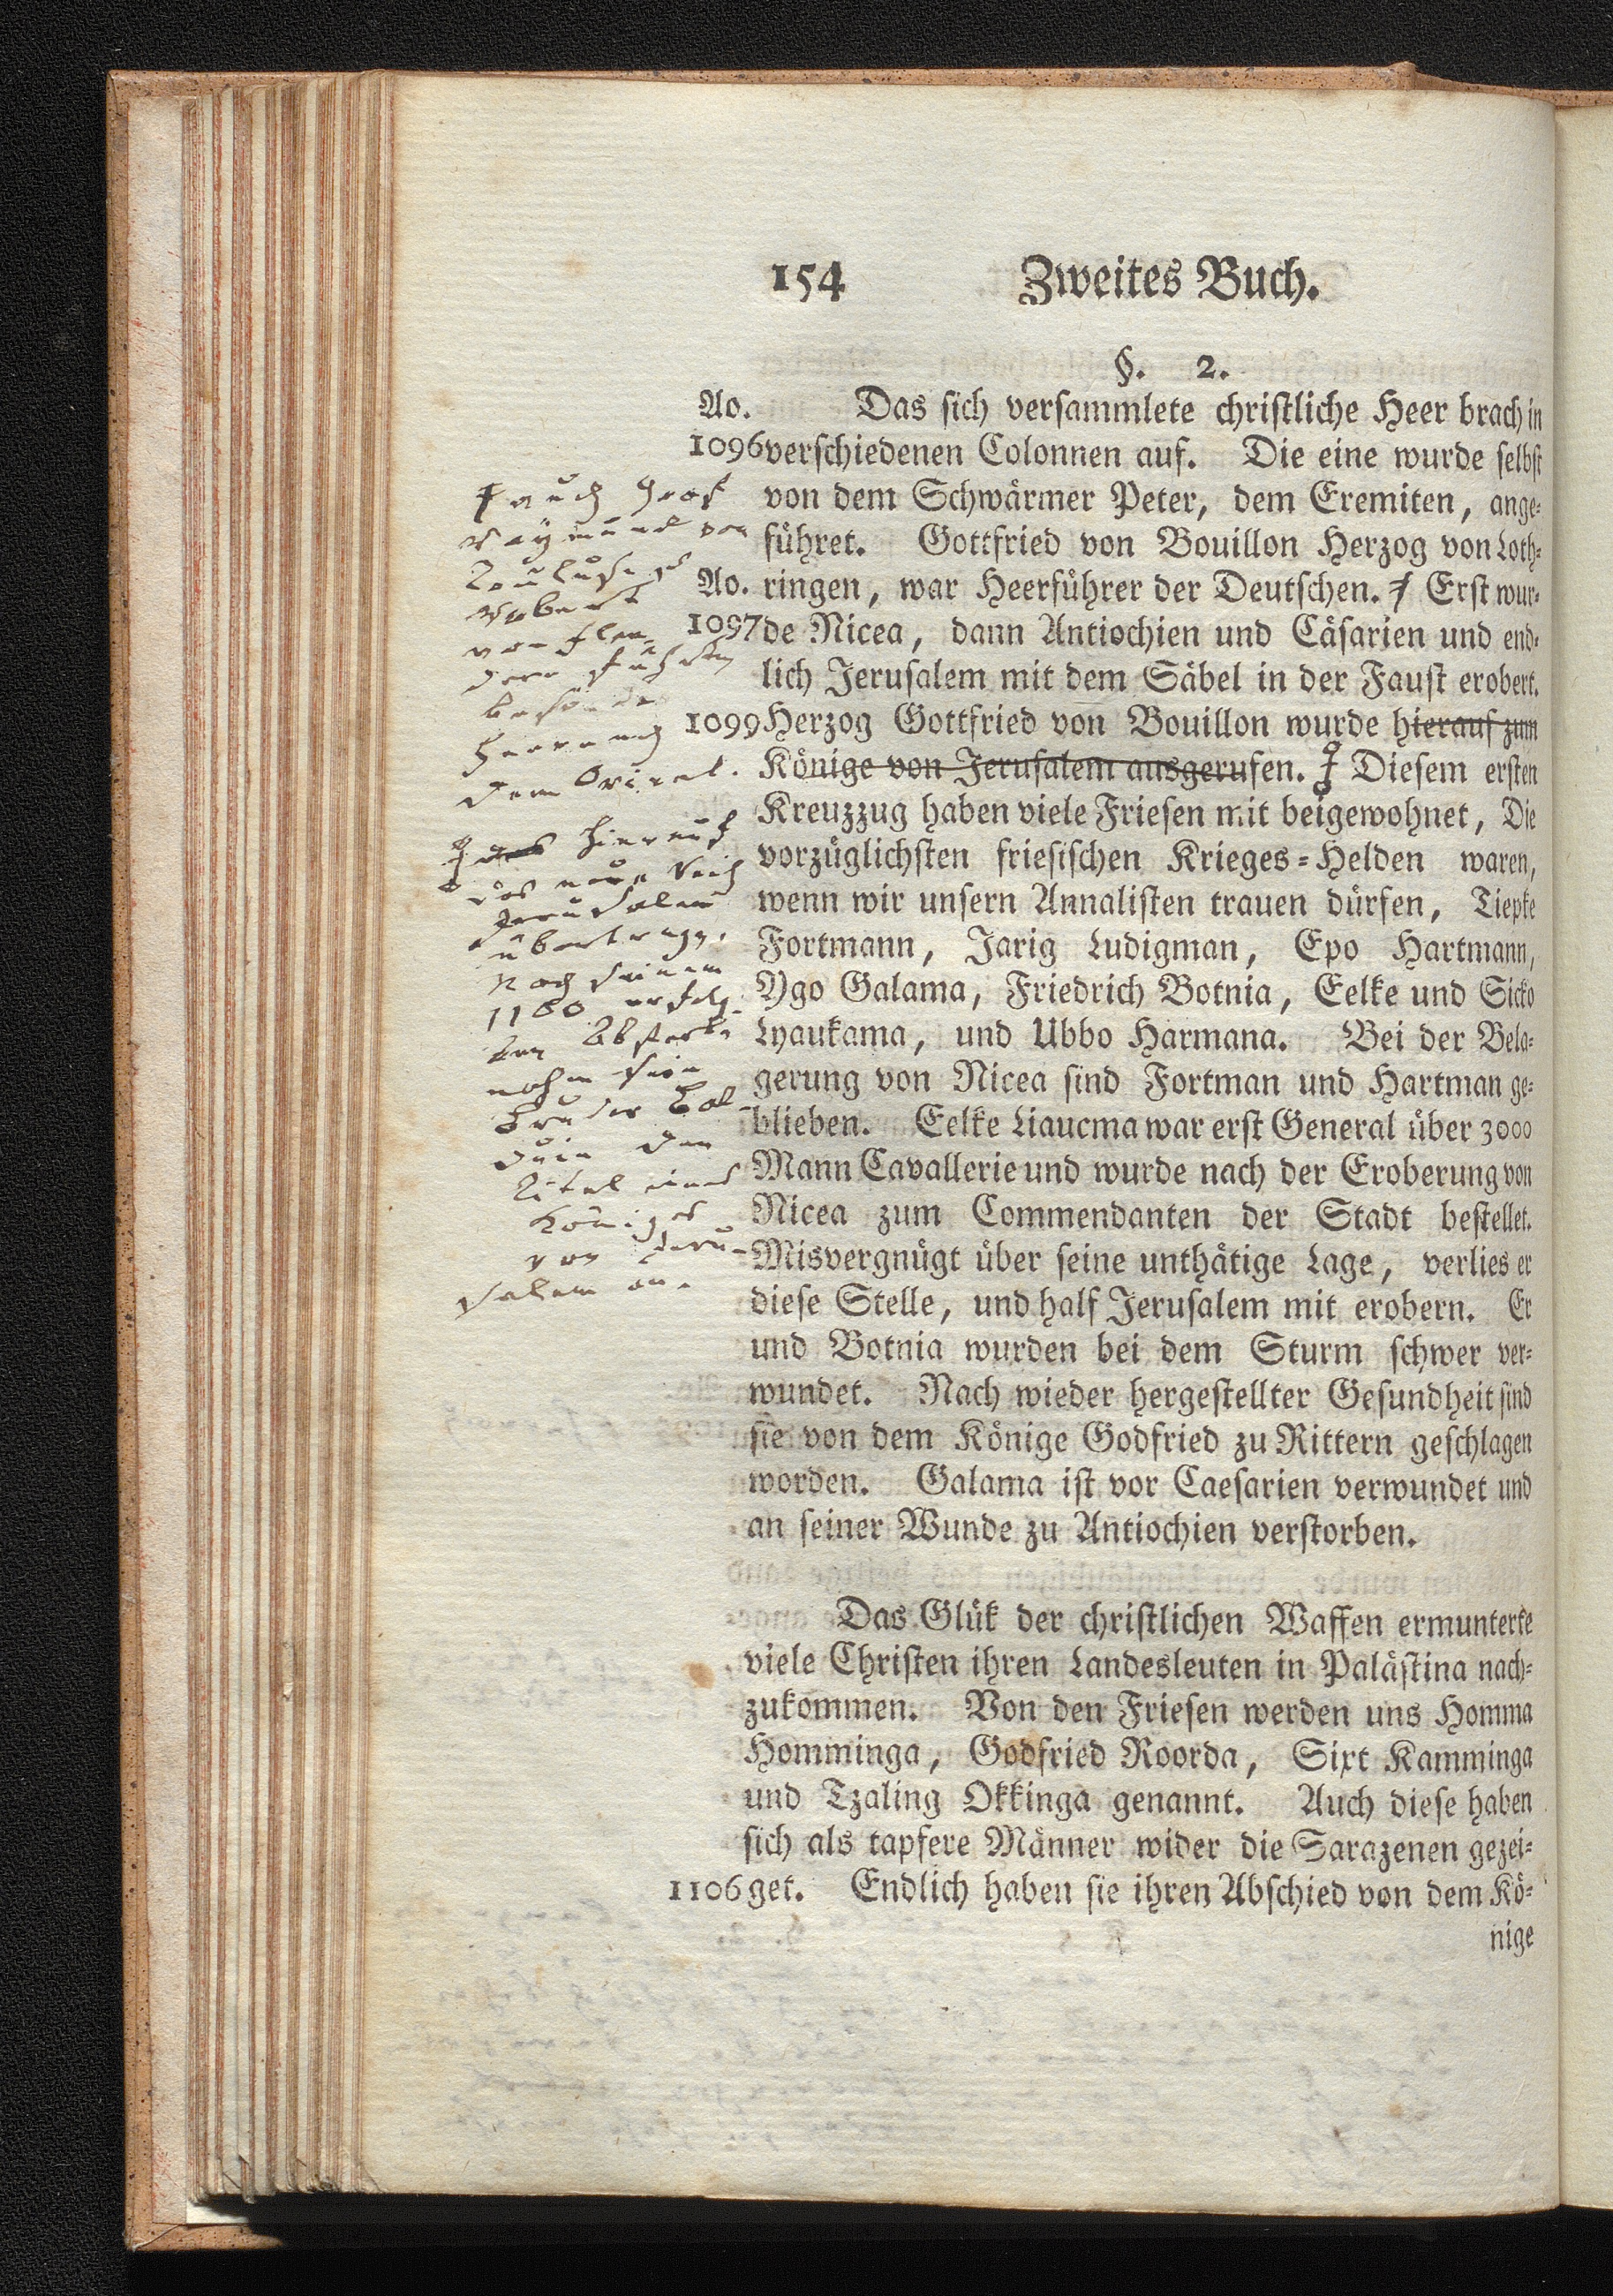 154 Zweites Buch.
§. 2.
Ao. Das sich versammlete christliche Heer brach in
1096 verschiedenen Colonnen auf. Die eine wurde selbst
von dem Schwärmer Peter, dem Eremiten, ange-
führet. Gottfried von Bouillon Herzog von Loth-
Ao. ringen, war Heerführer der Deutschen. Erst wur-
1097 de Nicea, dann Antiochien und Cäsarien und end-
lich Jerusalem mit dem Säbel in der Faust erobert.
1099 Herzog Gottfried von Bouillon wurde hierauf zum
Könige von Jerusalem ausgerufen. Diesem ersten
Kreuzzug haben viele Friesen mit beigewohnet, Die
vorzüglichsten friesischen Krieges-Helden waren,
wenn wir unsern Annalisten trauen dürfen, Tiepke
Fortmann, Jarig Ludigman, Epo Hartmann,
Ygo Galama, Friedrich Botnia, Eelke und Sicko
Lyaukama, und Ubbo Harmana. Bei der Bela-
gerung von Nicea sind Fortman und Hartman ge-
blieben. Eelke Liaucma war erst General über 3000
Mann Cavallerie und wurde nach der Eroberung von
Nicea zum Commendanten der Stadt bestellet.
Misvergnügt über seine unthätige Lage, verlies er
diese Stelle, und half Jerusalem mit erobern. Er
und Botnia wurden bei dem Sturm schwer ver-
wundet. Nach wieder hergestellter Gesundheit sind
sie von dem Könige Godfried zu Rittern geschlagen
worden. Galama ist vor Caesarien verwundet und
an seiner Wunde zu Antiochien verstorben.
Das Glük der christlichen Waffen ermunterte
viele Christen ihren Landesleuten in Palästina nach-
zukommen. Von den Friesen werden uns Homma
Homminga, Godfried Roorda, Sixt Kamminga
und Tzaling Okkinga genannt. Auch diese haben
sich als tapfere Männer wider die Sarazenen gezei-
1106 get. Endlich haben sie ihren Abschied von dem Kö-
nige
auch Graf
Raymund von
Toulouse
Robert
von Flan-
dern führten
besonde
Heere nach
dem Orient.
hierauf
das neue Reich
Jerusalem
übertragen.
Nach seinem
1100 erfolg-
ten Absterben
nahm sein
Bruder Bal-
duin den
Titel eines
Königes
von Jeru-
salem an.